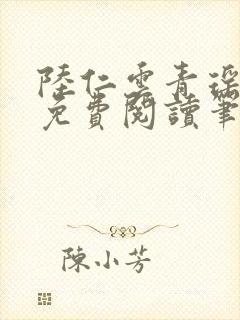 陸仁雲青瑤
免費閱讀筆
陳小芳